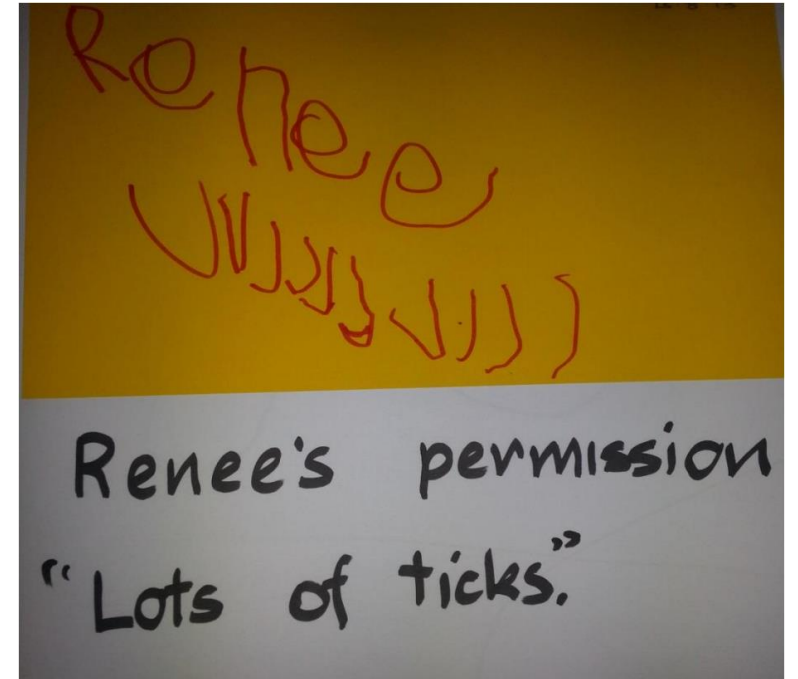 Renee
Renee's permission
"Lots of ticks."